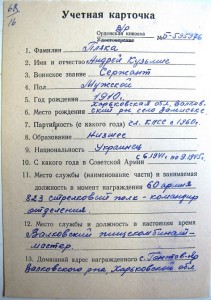 68
16
Учетная карточка
б/р
Орденская книжка №
Удостоверение
1. Фамилия
2. Имя и отчество Андрей Кузьмич
3. Воинское звание Сержант
4. Пол Мужской
5. Год рождения 1910
Харьковская обл, Валков-
6. Место рождения ский р-н, село
7. Партийность (с какого года) чл. КПСС с 1960 г.
8. Образование Низшее
9. Национальность Украинец
10. С какого года в Советской Армии с 6.1941 по 9.1945 г.
11. Место службы (наименование части) и занимаемая
должность в момент награждения 60 армия
823 стрелковый полк - командир
отделения.
12. Место службы и должность в настоящее время
Валковский пищекомбинат-
мастер.
13. Домашний адрес награжденного с.
Валковского р-на, Харьковской обл